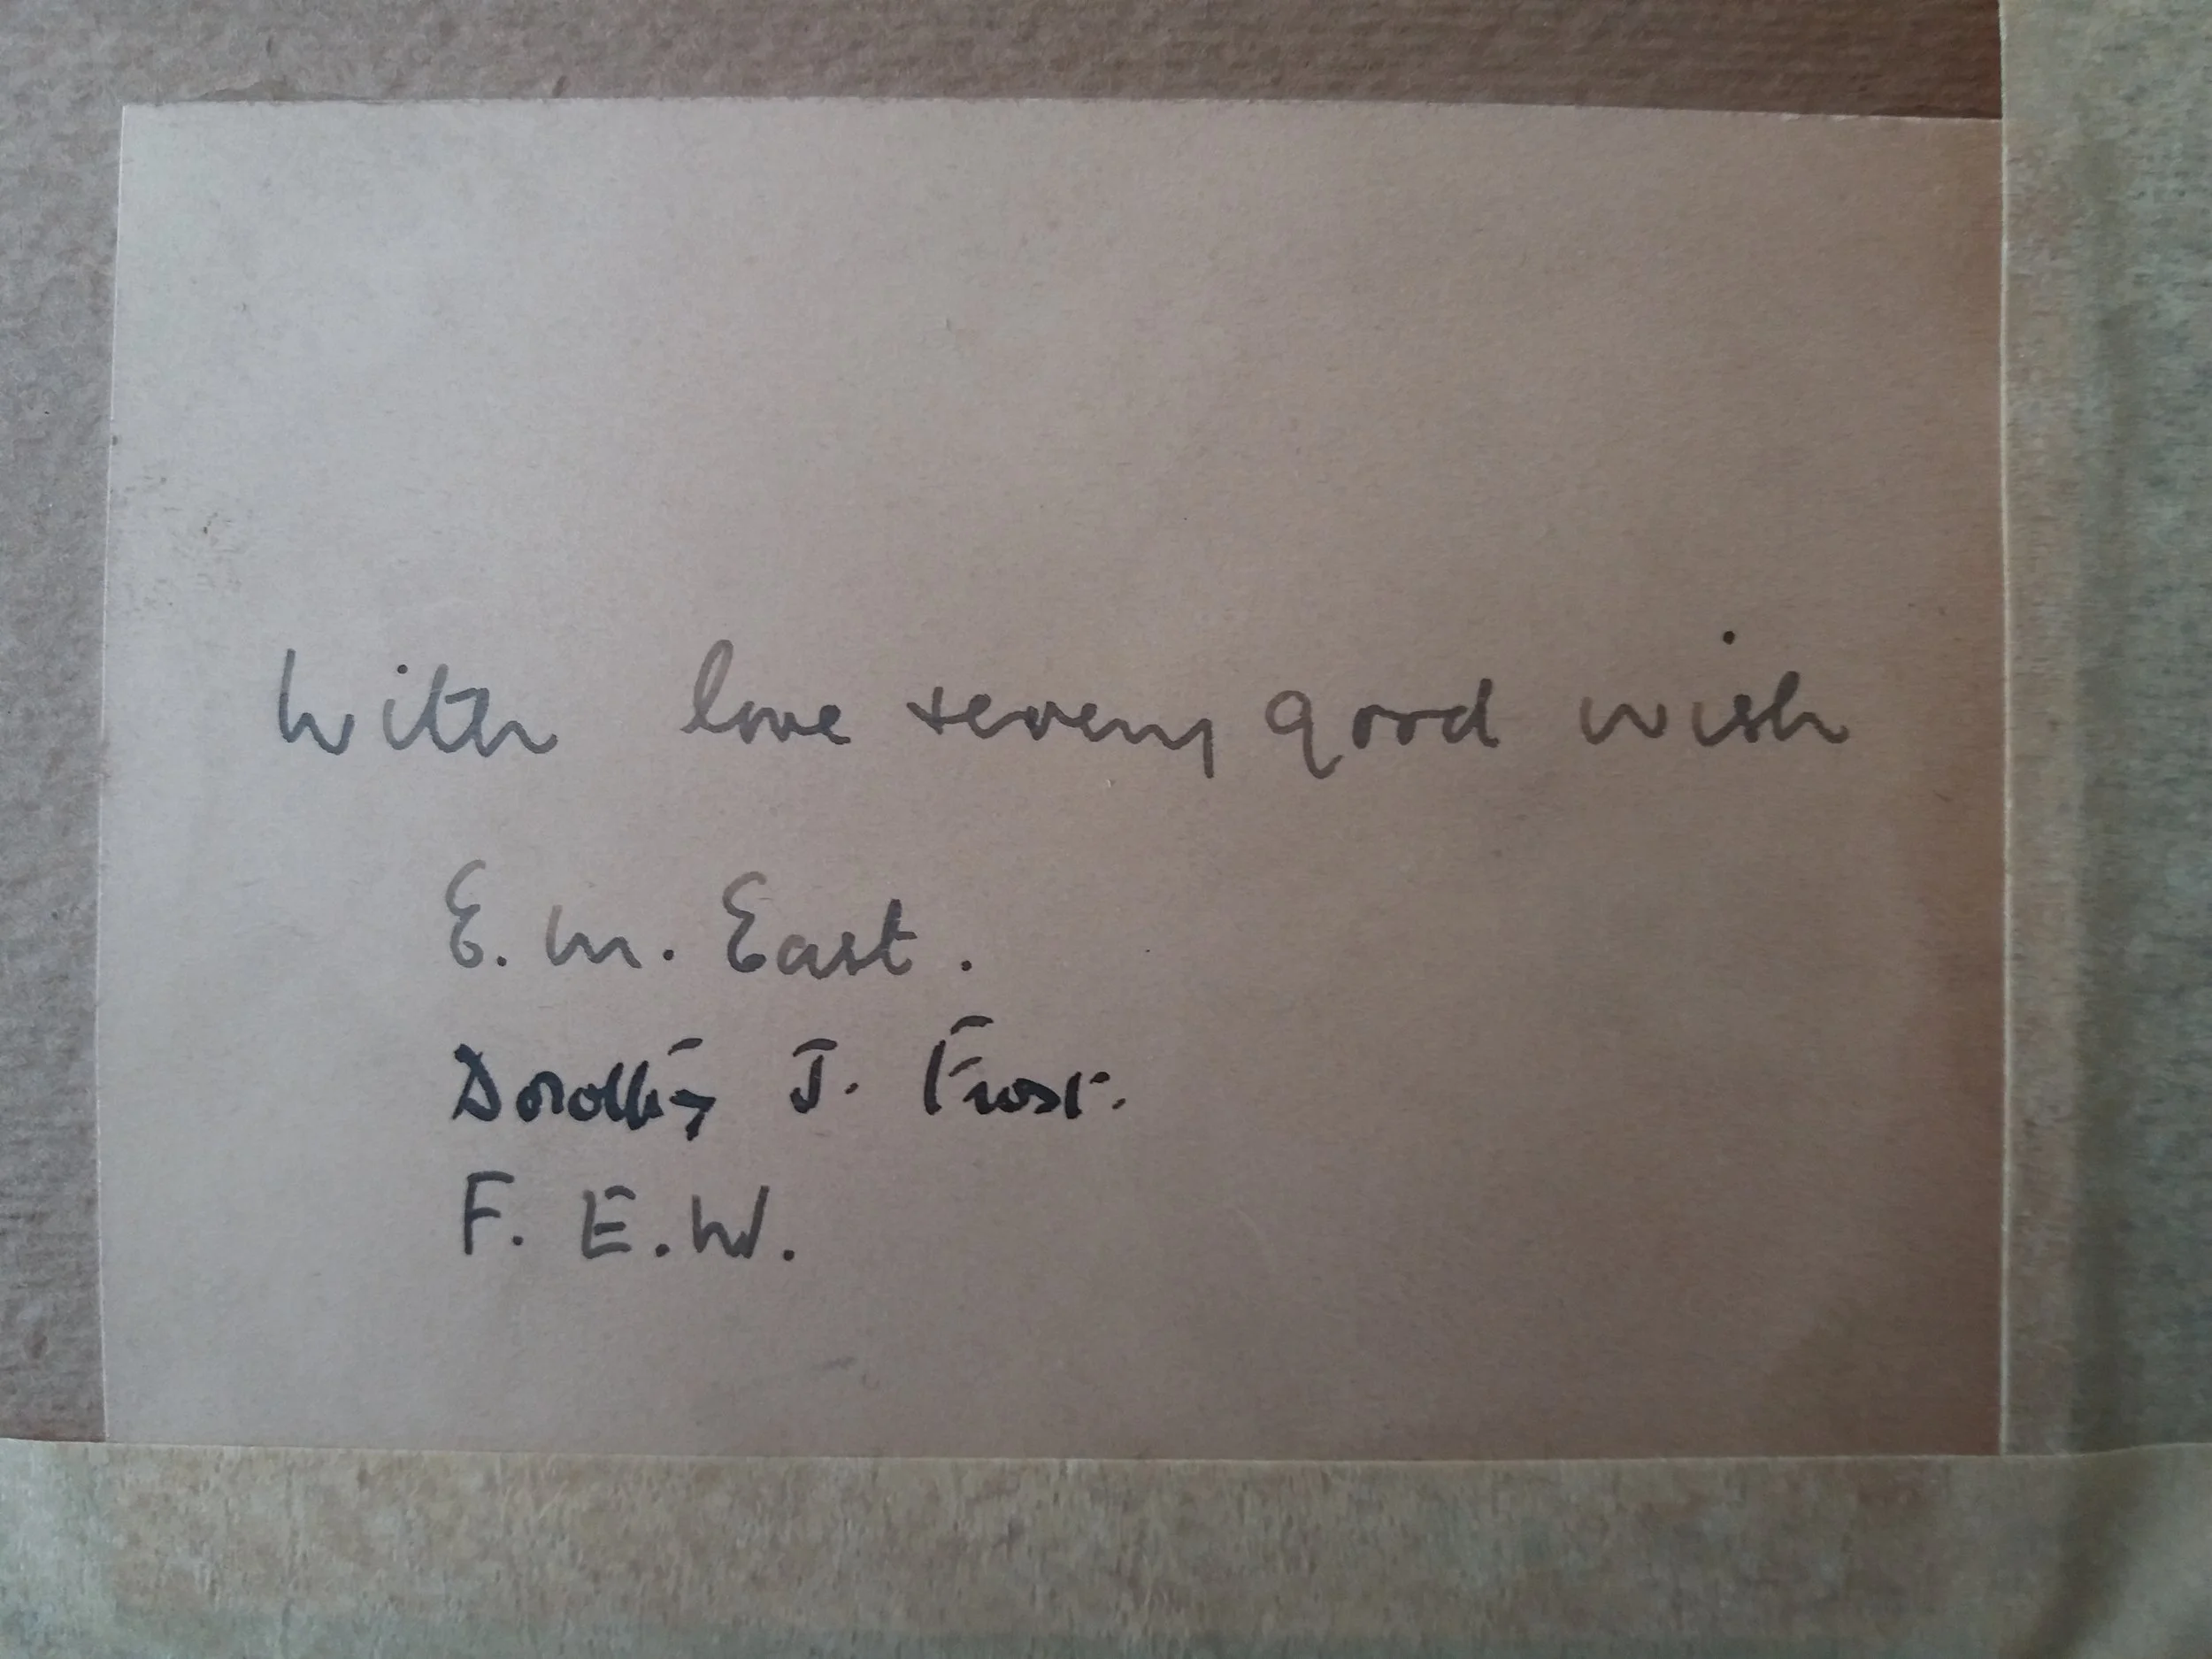 With love + every good wish
E. M. East.
Dorothy J. Frost.
F. E. W.